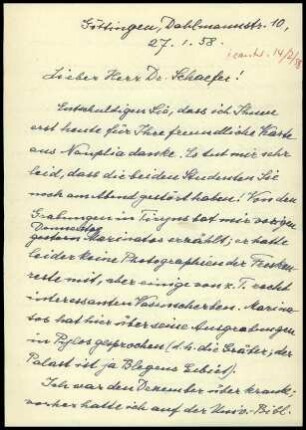 Göttingen, Dahlmannstr. 10,
27. 1. 58.
beantw. 14/2/58
Lieber Herr Dr. Schaefer!
Entschuldigen Sie, dass ich Ihnen
erst heute für Ihre freundliche Karte
aus Nauplia danke. Es tut mir sehr
leid, dass die beiden Studenten Sie
noch am Abend gestört haben! Von den
Grabungen in Tiryns hat mir vorigen
Donnerstag
gestern Marinatos erzählt; er hatte
leider keine Photographien der Fresken-
reste mit, aber einige von z. T. recht
interessanten Vasenscherben. Marina-
tos hat hier über seine Ausgrabungen
in Pylos gesprochen (d. h. die Gräber; der
Palast ist ja Blegens Gebiet).
Ich war den Dezember über krank;
vorher hatte ich auf der Univ.-Bibl.